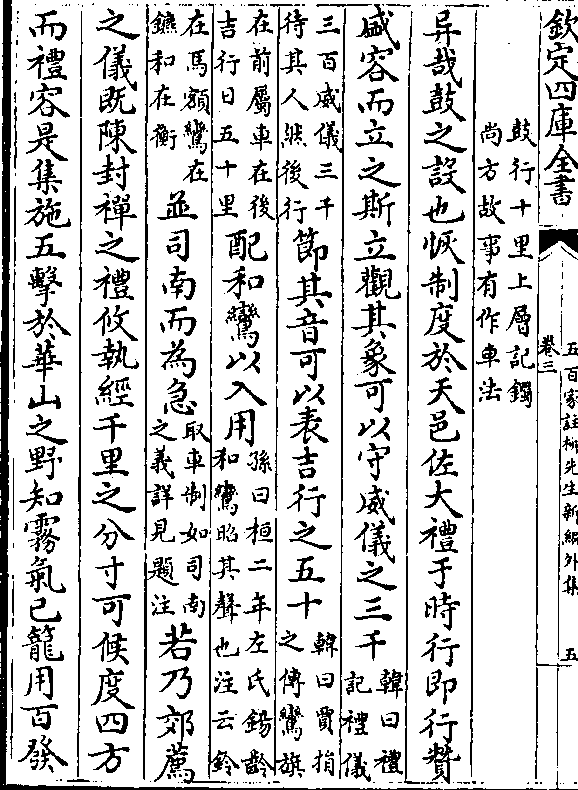 欽定四庫全書
卷三
五百家註柳先生新編外集
五
鼓行十里上層記鐲
尚方故事有作車法
异哉鼓之設也恢制度於天邑佐大禮于時行即行贊
盛容而立之斯立觀其象可以守威儀之三千韓曰禮
記禮儀
三百威儀三千
待其人然後行節其音可以表吉行之五十韓曰賈捐
之傳鸞旗
在前屬車在後
吉行日五十里配和鸞以入用孫曰桓二年左氏鍚
和鸞昭其聲也注云鈴
在馬額鸞在
鑣和在衡並司南而為急取車制如司南
之義詳見題注若乃郊薦
之儀既陳封禪之禮攸執經千里之分寸可候度四方
而禮容是集施五擊於華山之野知霧氣已籠用百發